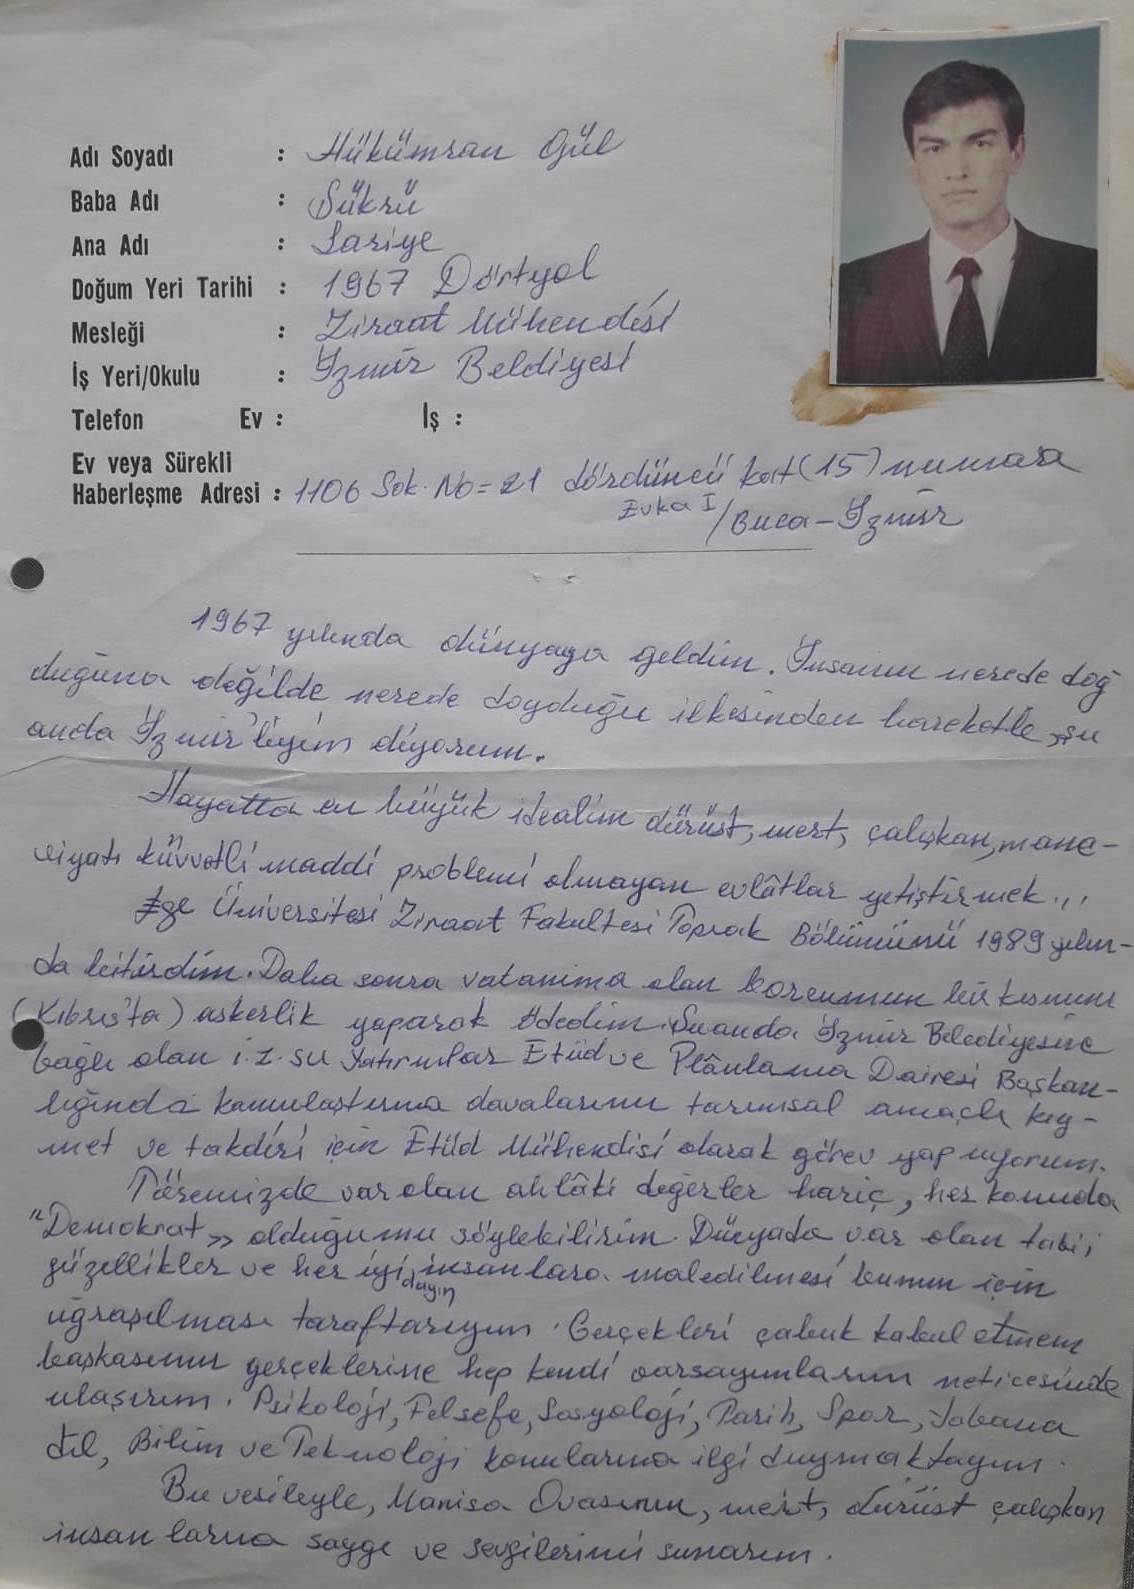 Adı Soyadı : Hükümran Gül
Baba Adı : Şükrü
Ana Adı : Sariye
Doğum Yeri Tarihi : 1967 Dörtyol
Mesleği : Ziraat Mühendisi
İş Yeri/Okulu : İzmir Beldiyesi
Telefon Ev : İş :
Ev veya Sürekli
Haberleşme Adresi : 1106 Sok. No = 21 dördüncü kat (15) numara
Evka I / Buca - İzmir
1967 yılında dünyaya geldim. İnsanın nerede doğ
duğuna değilde nerede doyduğu ilkesinden hareketle, şu
anda İzmir'liyim diyorum.
Hayatta en büyük idealim dürüst, mert, çalışkan, mane-
viyatı küvvetli maddi problemi olmayan evlâtlar yetiştirmek...
Ege Üniversitesi Ziraat Fakültesi Toprak Bölümünü 1989 yılın-
da bitirdim. Daha sonra vatanıma olan borcumun bir kısmını
(Kıbrıs'ta) askerlik yaparak ödedim. Şuanda İzmir Belediyesine
bağlı olan i.z.su Yatırımlar Etüd ve Plânlama Dairesi Başkan-
lığında kamulaştırma davalarının tarımsal amaçlı kıy-
met ve takdiri için Etüd Mühendisi olarak görev yapıyorum.
Töremizde var olan ahlâki değerler hariç, her konuda
"Demokrat" olduğumu söylebilirim. Dünyada var olan tabii
güzellikler ve her iyi insanlara maledilmesi bunun için
dayın
uğraşılması taraftarıyım. Gerçekleri çabuk kabul etmem
başkasının gerçeklerine hep kendi varsayımlarım neticesinde
ulaşırım. Psikoloji, Felsefe, Sosyoloji, Tarih, Spor, Yabancı
dil, Bilim ve Teknoloji konularına ilgi duymaktayım.
Bu vesileyle, Manisa Ovasının, mert, dürüst çalışkan
insanlarına saygı ve sevgilerimi sunarım.